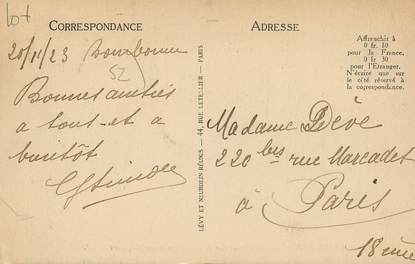 lot
CORRESPONDANCE
ADRESSE
Affranchir à
0 fr. 10
pour la France,
0 fr. 30
pour l'Etranger.
N'écrire que sur
le côté réservé à
la correspondance.
20/11/23 Bourbonne
52
Bonnes amitiés
a tout et a
bientôt
LÉVY ET NEURDEIN RÉUNIS — 44, RUE LETELLIER — PARIS
Madame Dève
220 bis rue Marcadet
à Paris
18 eme